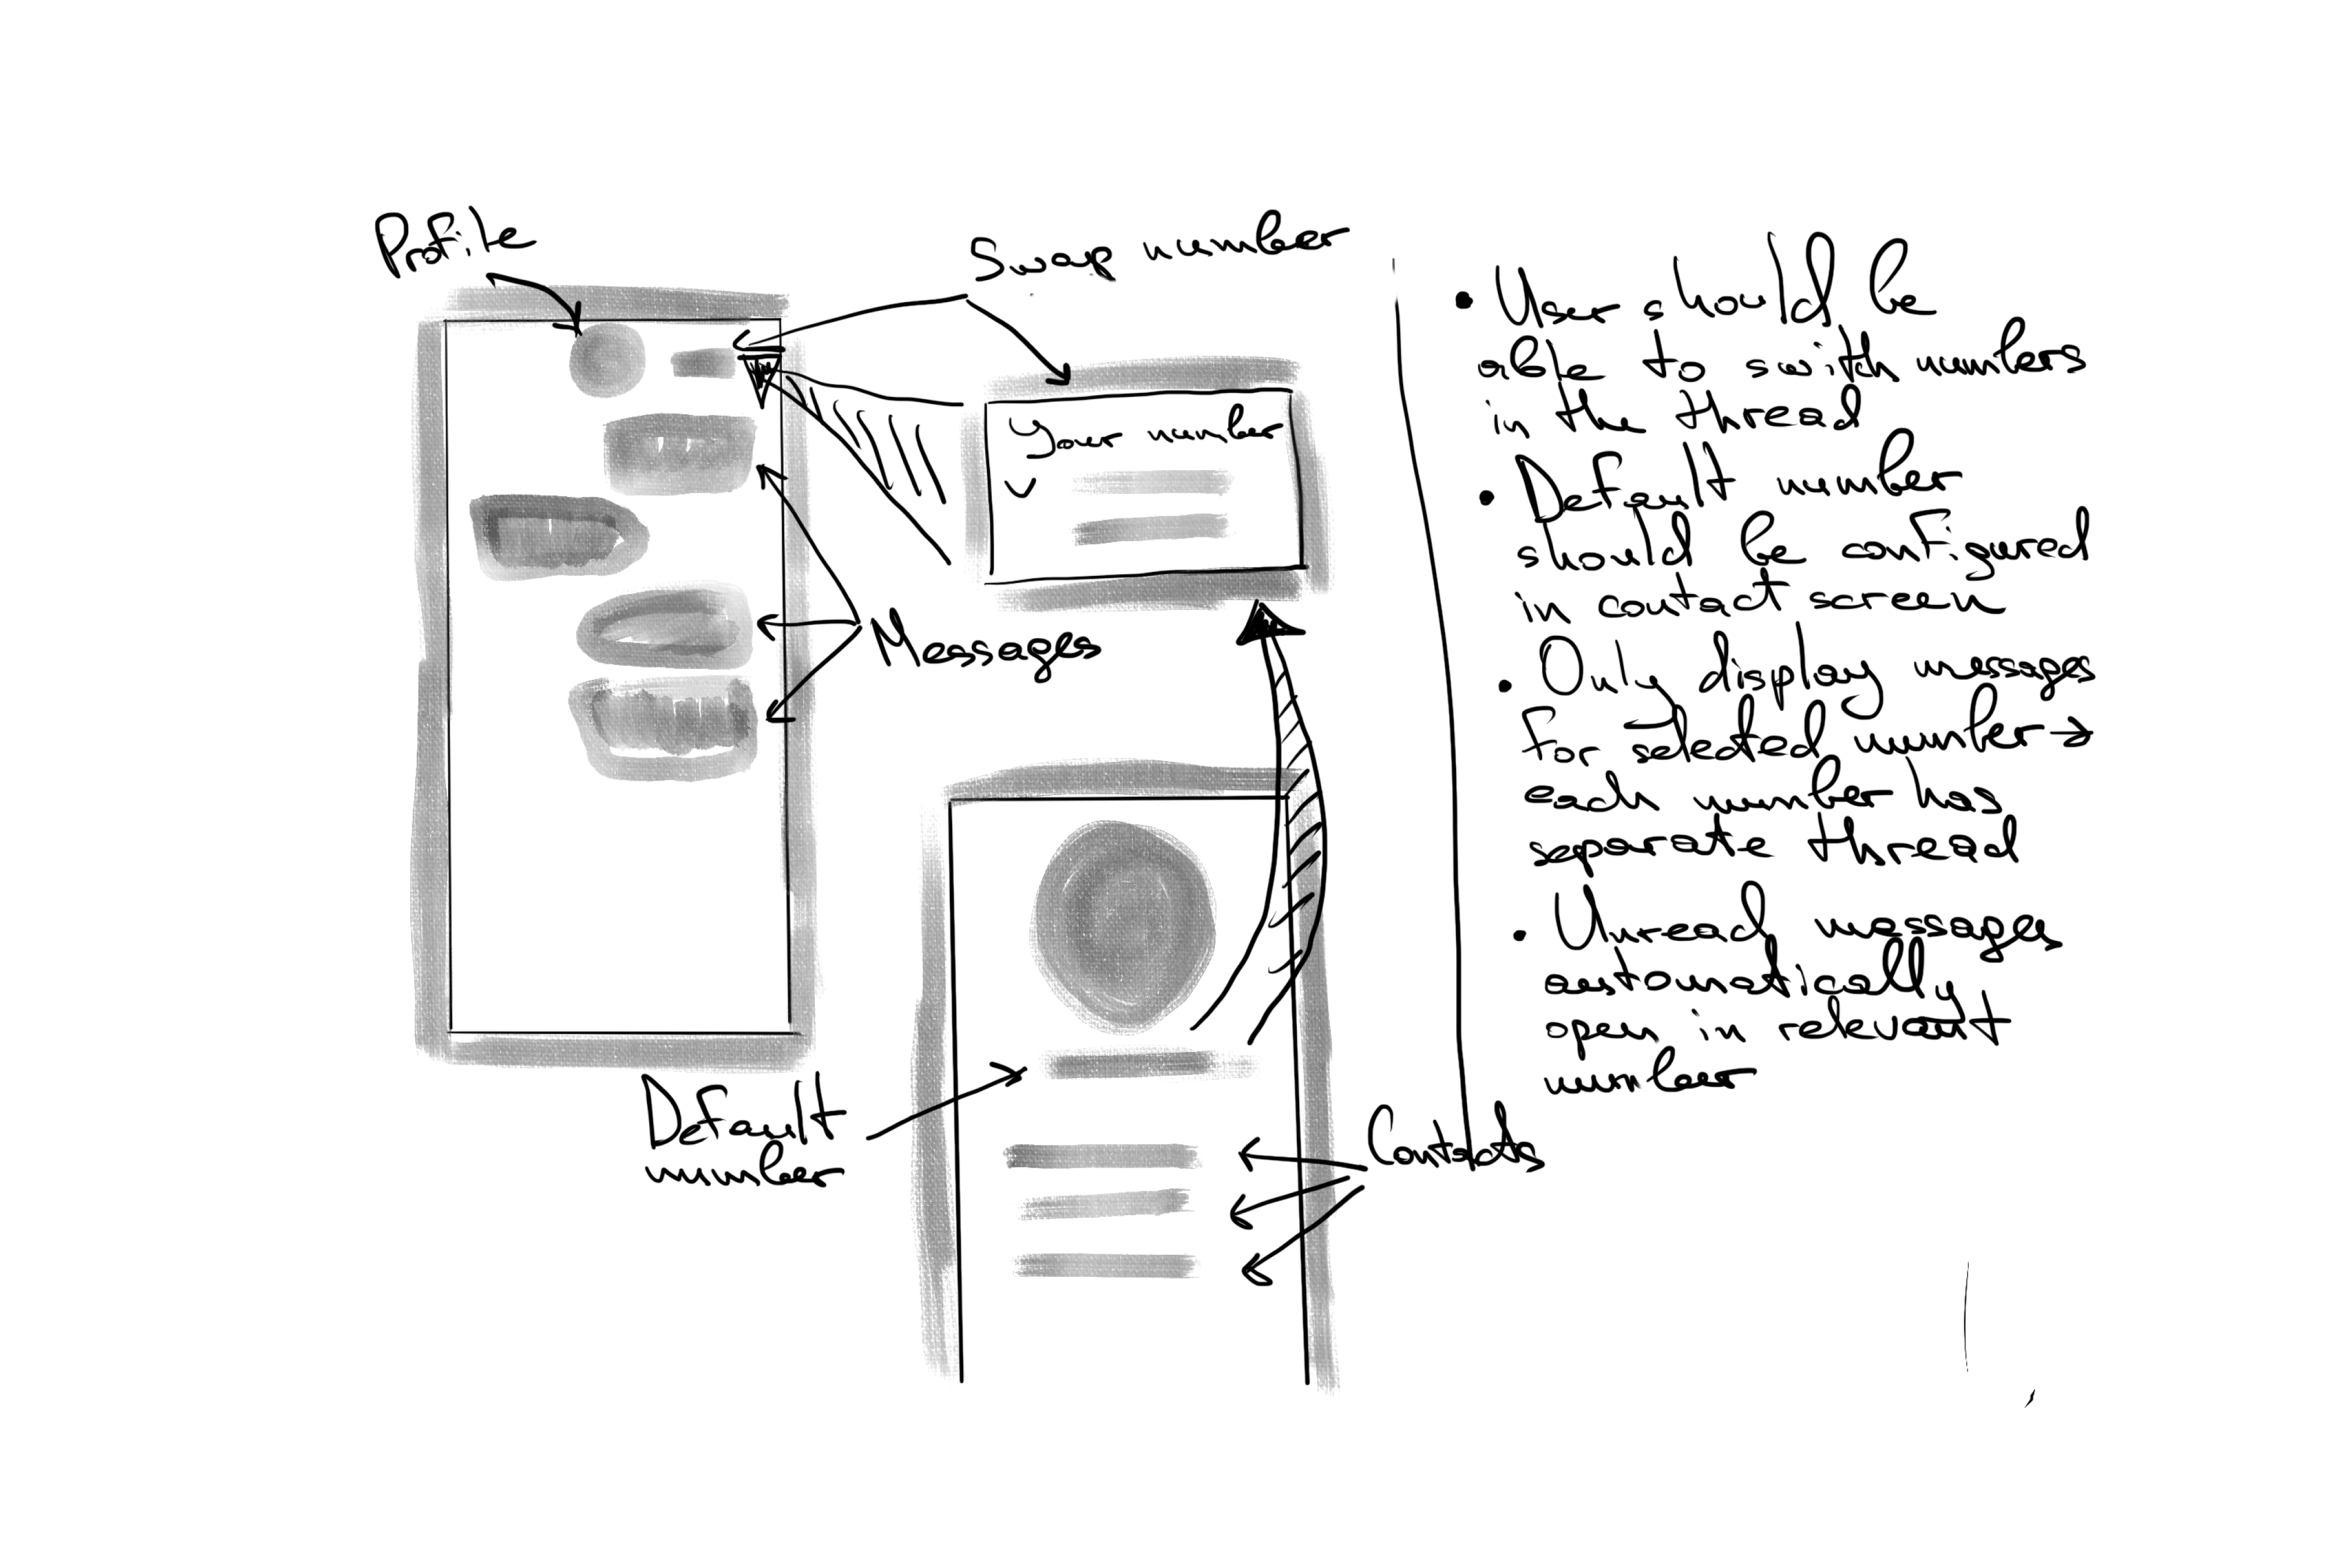 Profile
Swap number
Your number
Messages
Default
number
Contacts
• User should be
able to swith numbers
in the thread
• Default number
should be configured
in contact screen
• Only display messages
for selected number →
each number has
separate thread
• Unread messages
automatically
open in relevant
number